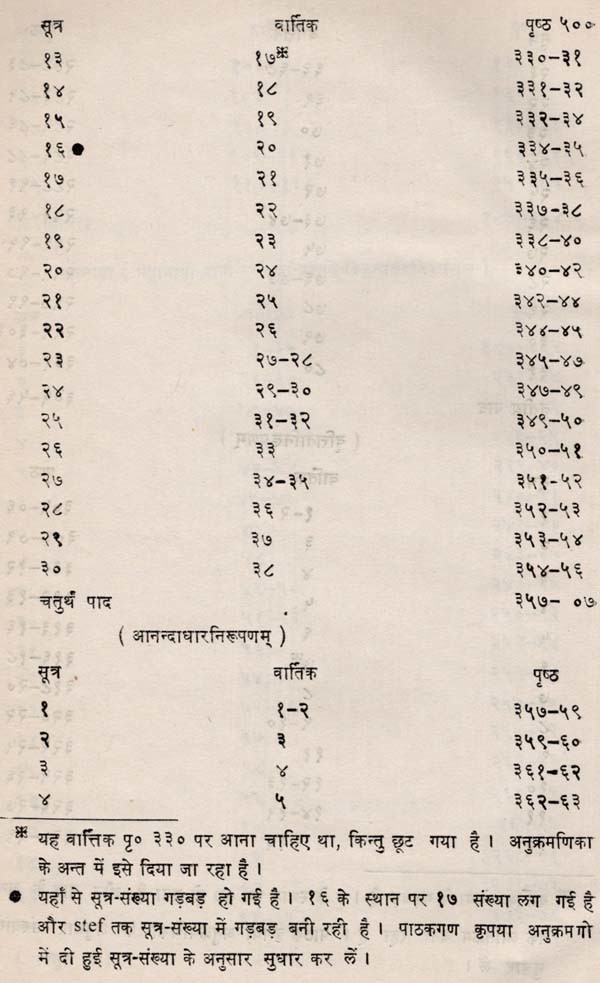 सूत्र वार्त्तिक पृष्ठ ५००
१३ १७※ ३३०-३१
१४ १८ ३३१-३२
१५ १९ ३३२-३४
१६ ● २० ३३४-३५
१७ २१ ३३५-३६
१८ २२ ३३७-३८
१९ २३ ३३८-४०
२० २४ ३४०-४२
२१ २५ ३४२-४४
२२ २६ ३४४-४५
२३ २७-२८ ३४५-४७
२४ २९-३० ३४७-४९
२५ ३१-३२ ३४९-५०
२६ ३३ ३५०-५१
२७ ३४-३५ ३५१-५२
२८ ३६ ३५२-५३
२९ ३७ ३५३-५४
३० ३८ ३५४-५६
चतुर्थ पाद ३५७- ०७
( आनन्दाधारनिरूपणम् )
सूत्र वार्त्तिक पृष्ठ
१ १-२ ३५७-५९
२ ३ ३५९-६०
३ ४ ३६१-६२
४ ५ ३६२-६३
※ यह वार्त्तिक पृ० ३३० पर आना चाहिए था, किन्तु छूट गया है । अनुक्रमणिका
के अन्त में इसे दिया जा रहा है ।
● यहाँ से सूत्र-संख्या गड़बड़ हो गई है । १६ के स्थान पर १७ संख्या लग गई है
और stef तक सूत्र-संख्या में गड़बड़ बनी रही है । पाठकगण कृपया अनुक्रमगो
में दी हुई सूत्र-संख्या के अनुसार सुधार कर लें ।